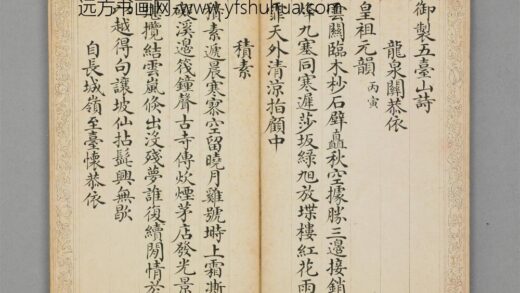 远方书画网 www.yfshuhua.com
御製五臺山詩
龍泉關恭依
皇祖元韻 丙寅
雲關臨木杪石壁矗秋空據勝三邊接銷
烽九塞同寒遲莎坂綠旭放堞樓紅花雨
霏天外清涼指顧中
積素
積素遞晨寒寥空留曉月雞號塒上霜澌
磵溪邊筏鐘聲古寺傳炊煙茅店發光景
攬結雲嵐條出沒殘夢誰復續閒情於
越得句讓坡仙拈髭興無歇
自長城嶺至臺懷恭依